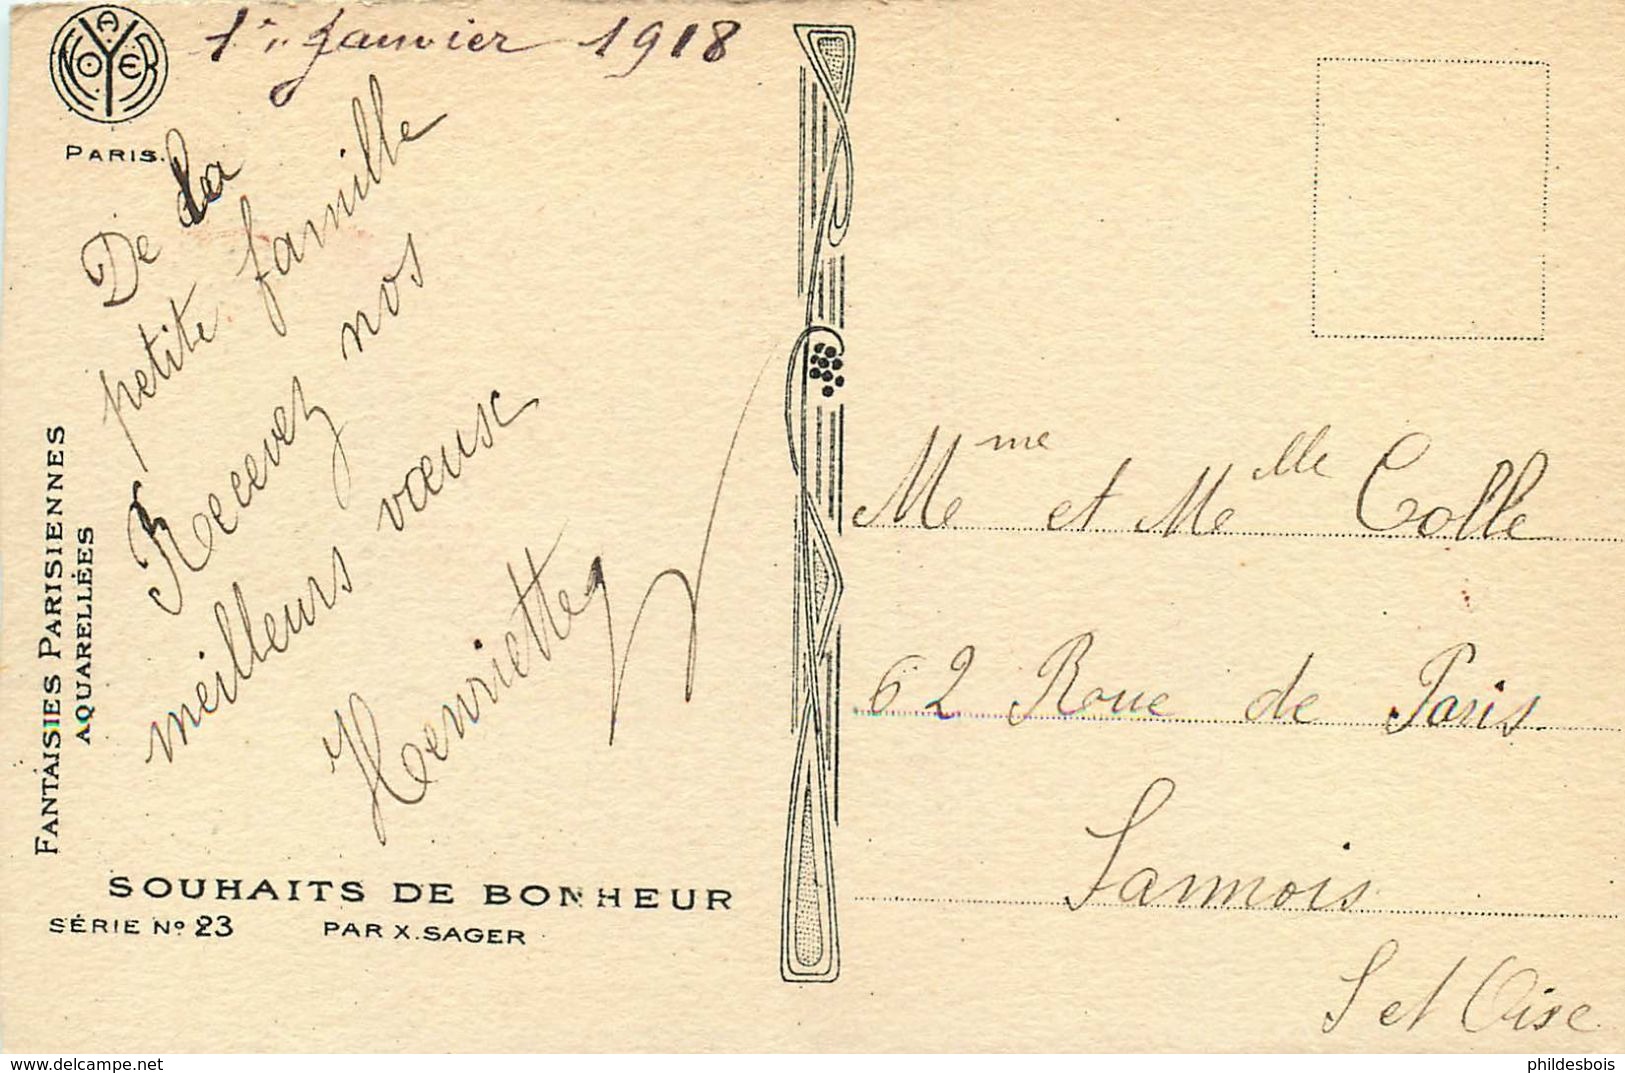 NOYER
A
PARIS.
1er Janvier 1918
De la
petite famille
Recevez nos
meilleurs vœux
Henriette
FANTAISIES PARISIENNES
AQUARELLÉES
SOUHAITS DE BONHEUR
SÉRIE No 23 PAR X. SAGER
Mme et Melle Colle
62 Roue de Paris.
Sannois
S et Oise
www.delcampe.net
phildesbois